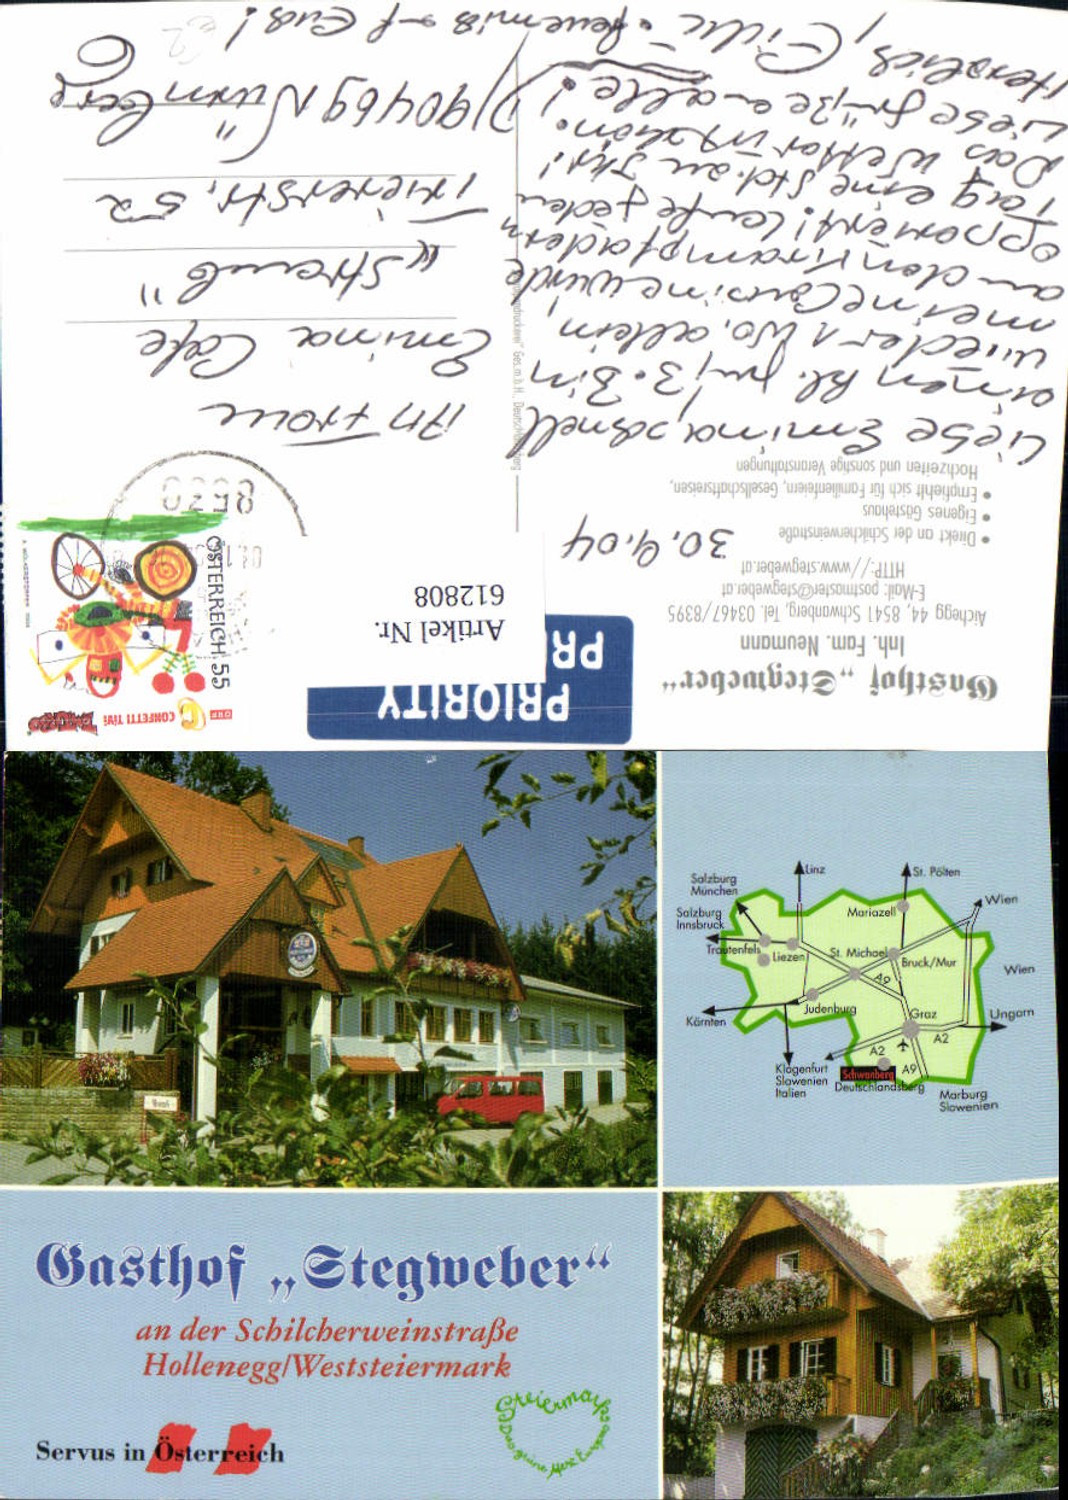 Gasthof „Stegweber“
Inh. Fam. Neumann
Aichegg 44, 8541 Schwanberg, Tel. 03467/8395
E-Mail: postmaster@stegweber.at
HTTP://www.stegweber.at
• Direkt an der Schilcherweinstraße
• Eigenes Gästehaus
• Empfiehlt sich für Familienfeiern, Gesellschaftsreisen,
Hochzeiten und sonstige Veranstaltungen
30.9.04
Liebe Emina, schnell
einen kl. Bin
wieder 1 Wo. allein,
meine wurde
an den Krampfadern
operiert! Laufe jeden
Tag eine Std. au
Das Wetter ist schön.
Liebe Grüße an alle!
Herzlich,
auf Eus!
PRIORITY
PR
Artikel Nr.
612808
ORF CONFETTI TiVi
ÖSTERREICH 55
8530
An Frau
Emina Cafe
"Straub"
Triererstr. 52
D 90469 Nürnberg
Ges.m.b.H., Deutschlandsberg
Salzburg
München
Linz
St. Pölten
Salzburg
Innsbruck
Mariazell
Wien
Trautenfels
Liezen
St. Michael
Bruck/Mur
Wien
A9
Judenburg
Graz
Ungarn
Kärnten
A2
A2
Klagenfurt
Slowenien
Italien
Schwanberg
A9
Deutschlandsberg
Marburg
Slowenien
Gasthof „Stegweber“
an der Schilcherweinstraße
Hollenegg/Weststeiermark
Steiermark
Das grüne Herz Europas
Servus in Österreich